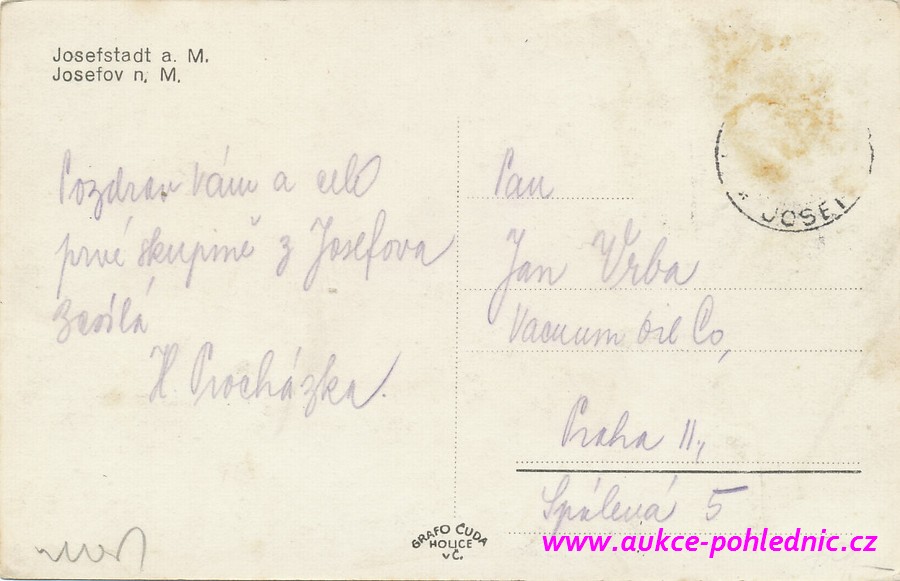 Josefstadt a. M.
Josefov n. M.
Pozdrav Vám a celé
prvé skupině z Josefova
zasílá
H Procházka.
Pan
Jan Vrba
Vacuum Oil Co,
Praha II,
Spálená 5
* JOSEF
GRAFO ČUDA
HOLICE
v Č.
www.aukce-pohlednic.cz